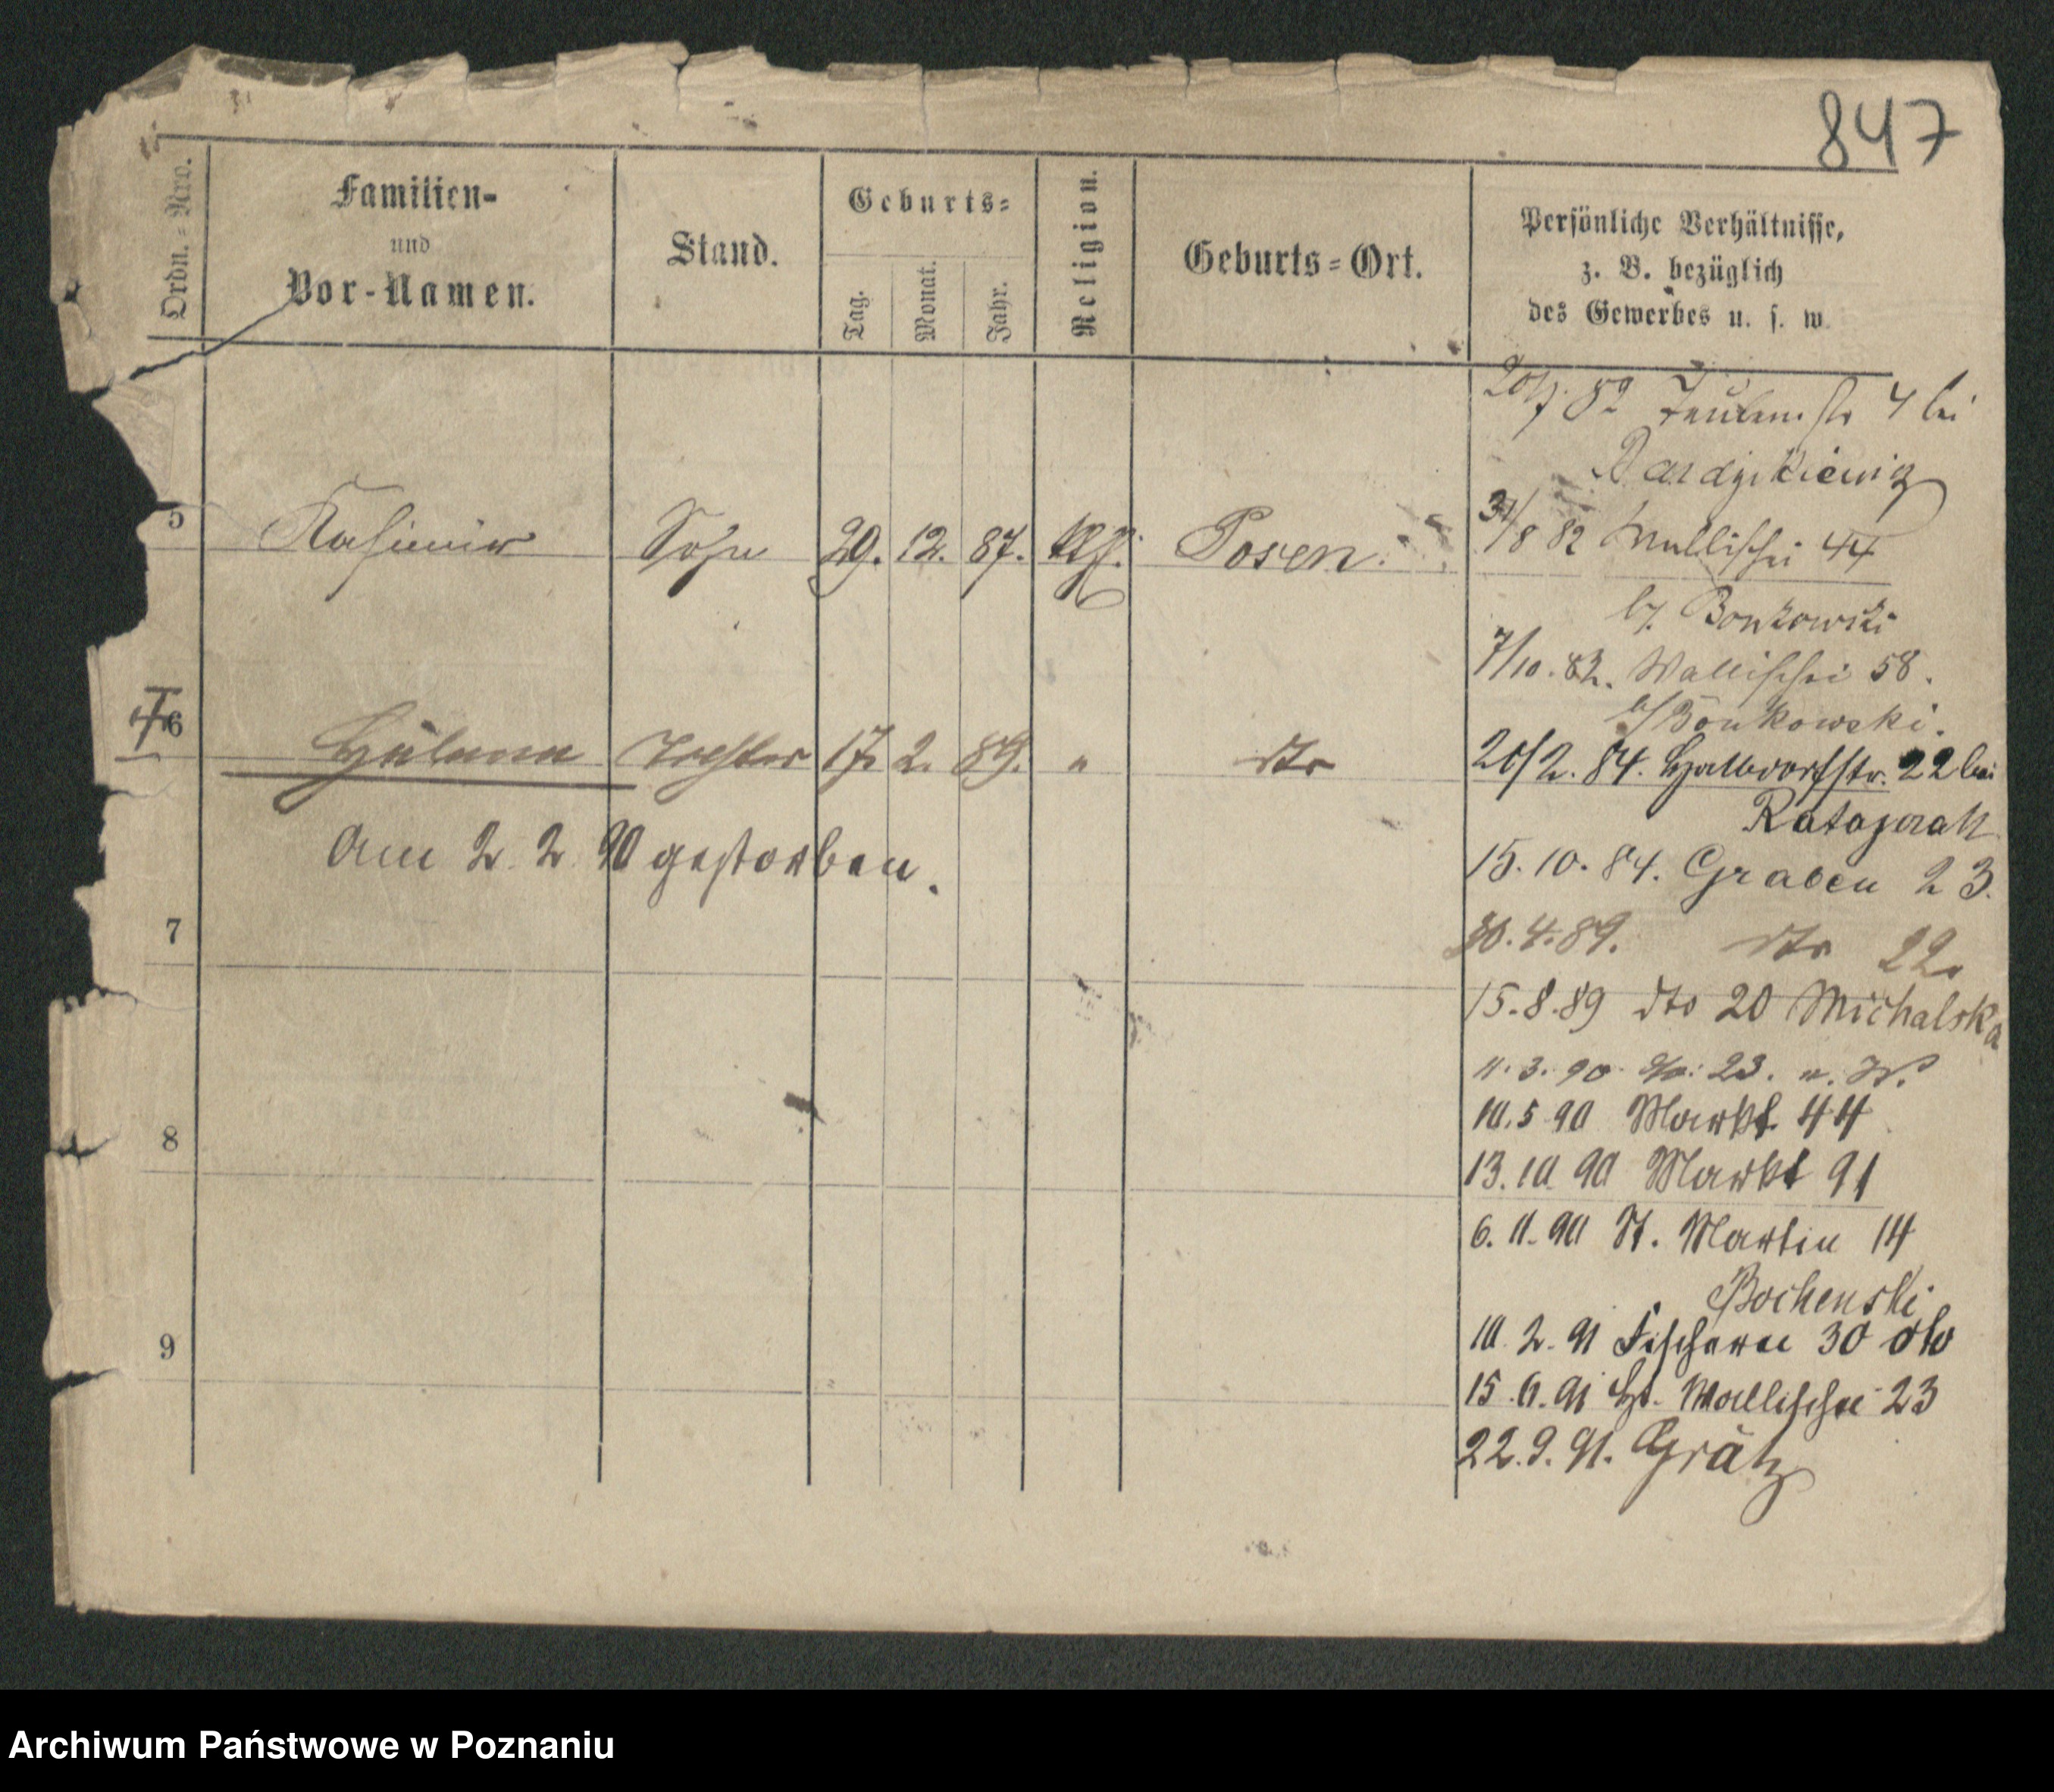 847
Ordn.=Nro.
Familien-
und
Vor-Namen.
Stand.
Geburts=
Tag.
Monat.
Jahr.
Religion.
Geburts=Ort.
Persönliche Verhältnisse,
z. B. bezüglich
des Gewerbes u. s. w.
20/7. 82 Taubenstr 4 bei
5 Kasimir Sohn 29. 12. 87. kth. Posen.
31/8 82 Wallischei 44
b/. Bonkowski
7/10. 82. Wallischei 58.
b/Bonkowski.
6 Tochter 17. 2. 89. " dto
Am 2. 2. 90 gestorben.
20/2. 84. Halbdorfstr. 22 bei
Ratajczak
15. 10. 84. Graben 23.
7
30. 4. 89. dto 22.
15. 8. 89 dto 20 Michalska
11. 3. 90. dto: 23. u. W.
8
10. 5 90 Markt 44
13. 10 90 Markt 91
6. 11. 90 St. Martin 14
Bochenski
9
10. 2. 91 Fischerei 30 dto
15. 6. 91 Wallischei 23
22. 9. 91. Grätz
Archiwum Państwowe w Poznaniu